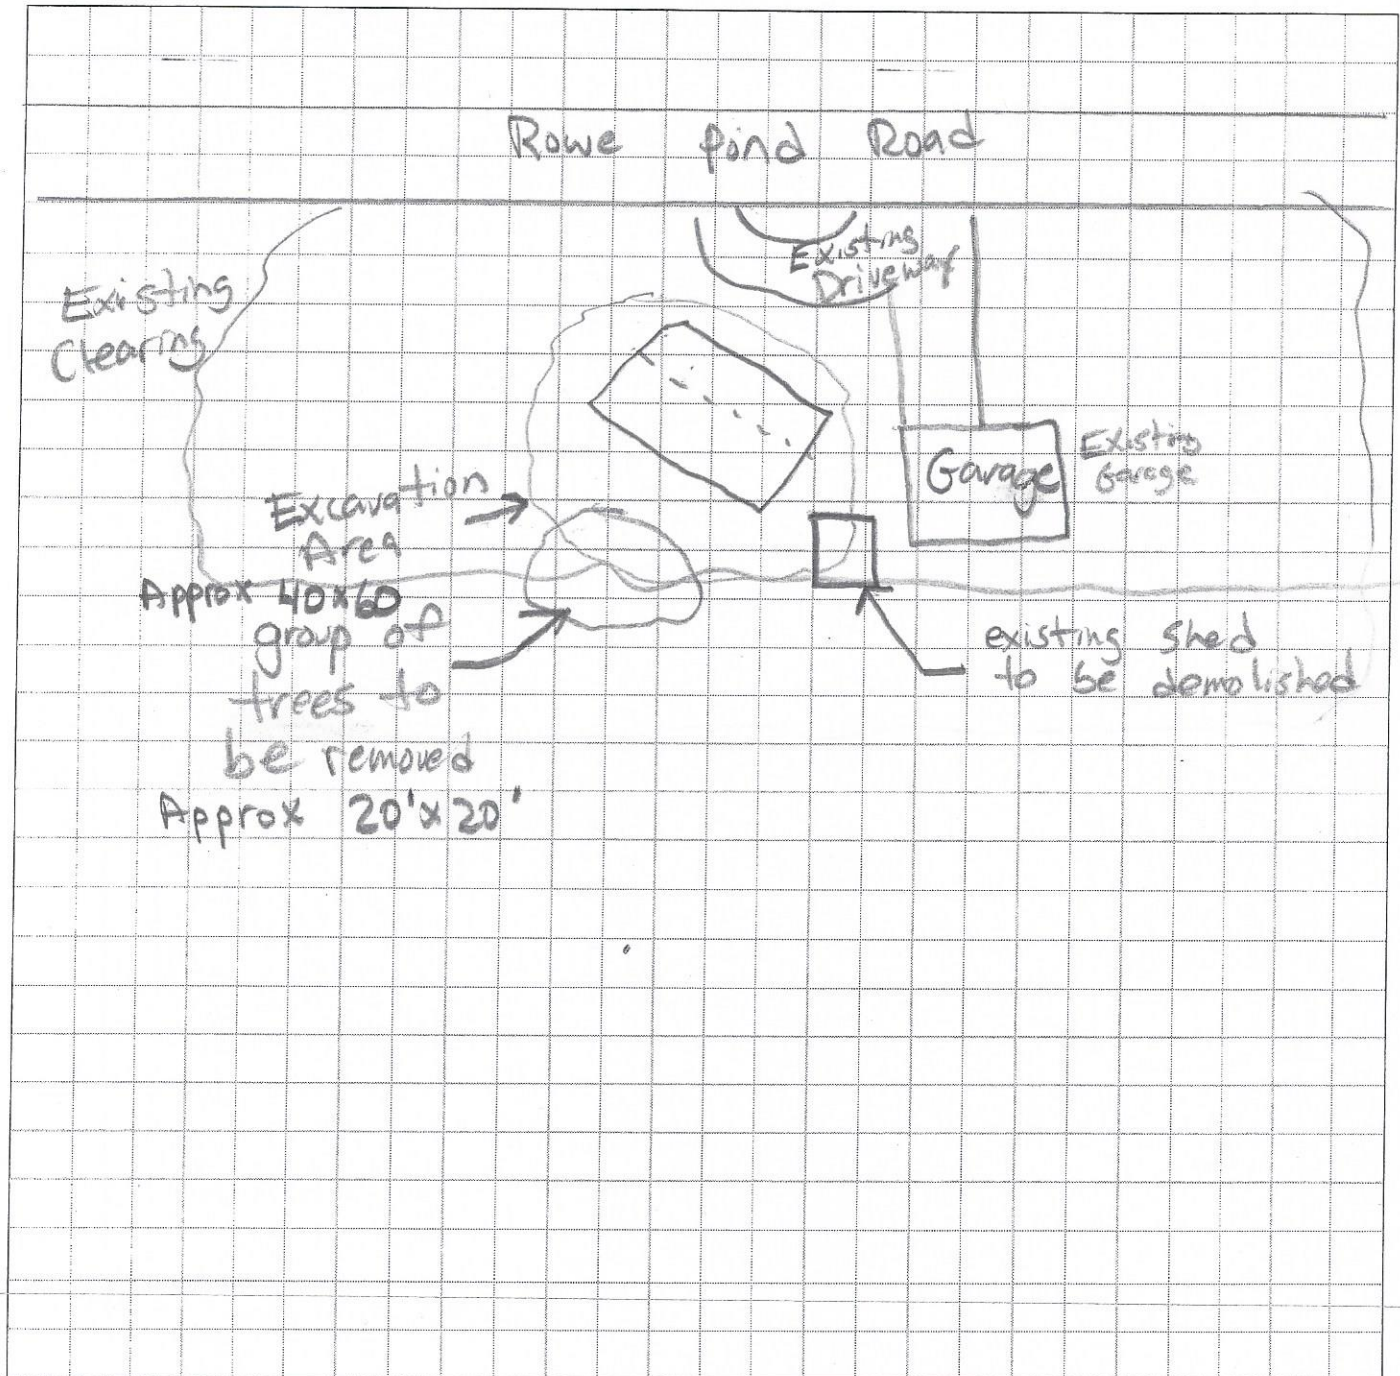 Rowe Pond Road
Existing
Driveway
Existing
Clearing
Garage
Existing
Garage
Excavation
Area
Approx 40x60
group of
trees to
be removed
Approx 20'x20'
existing shed
to be demolished